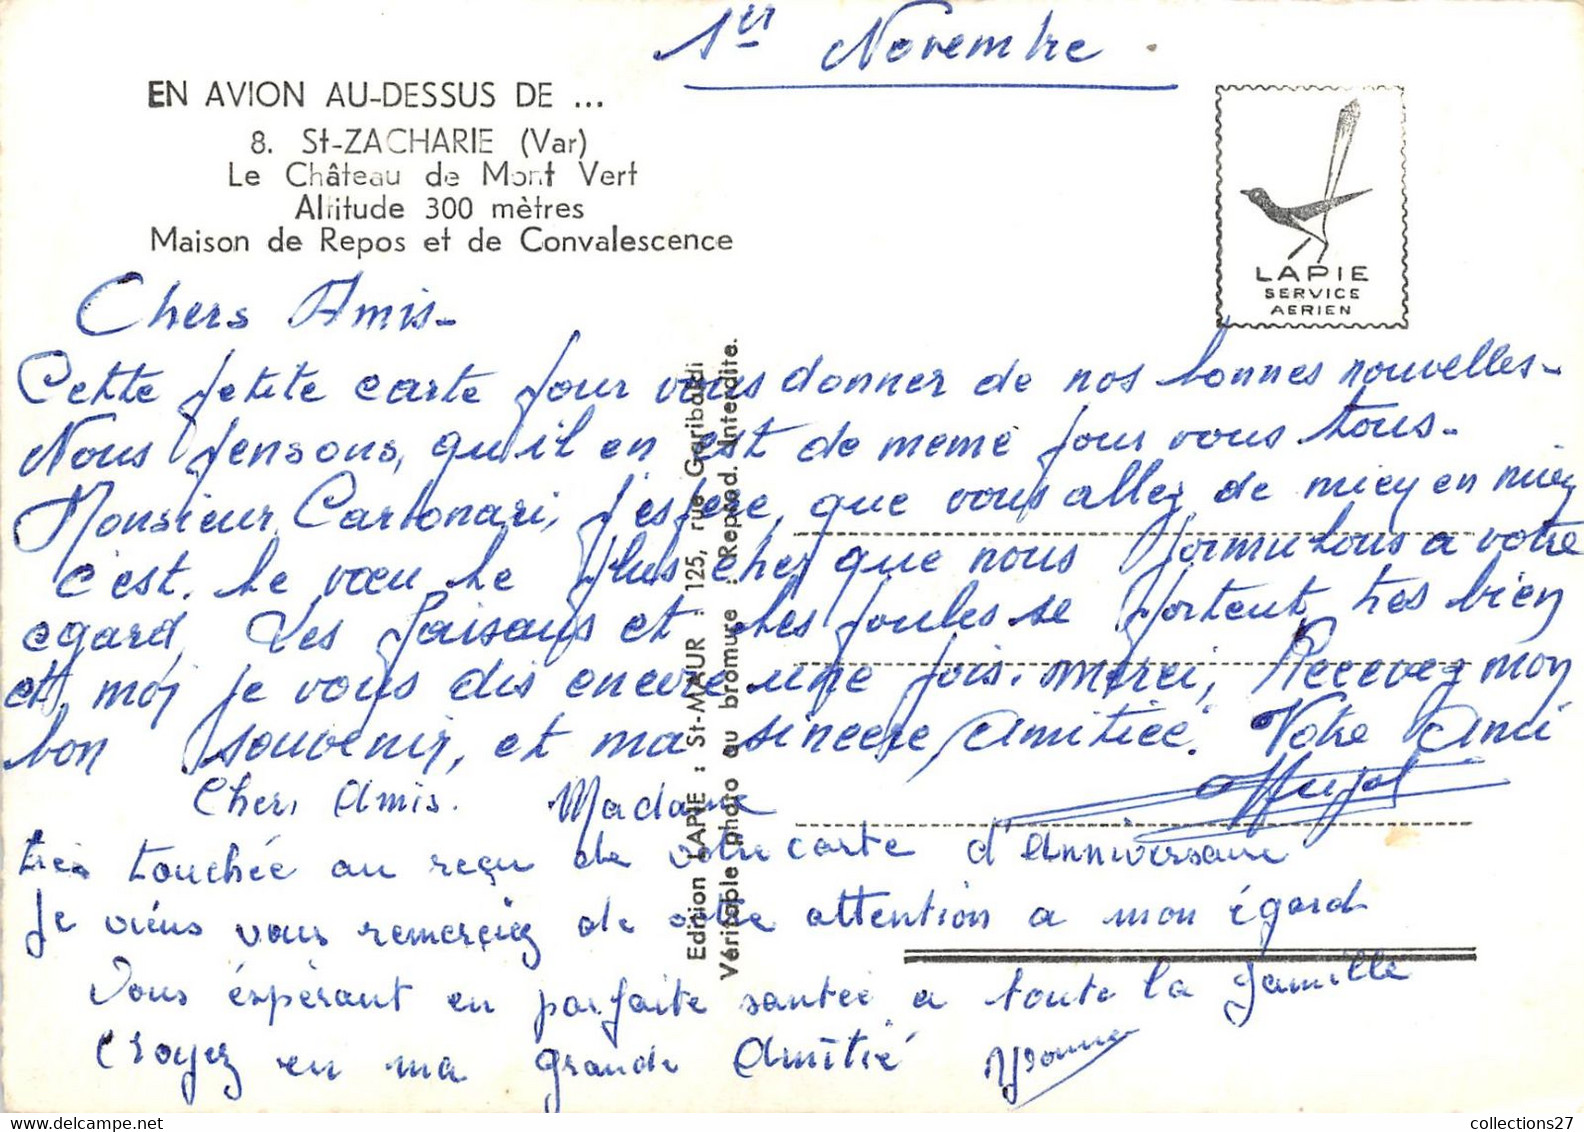 1er Novembre.
EN AVION AU-DESSUS DE ...
8. St-ZACHARIE (Var)
Le Château de Mont Vert
Altitude 300 mètres
Maison de Repos et de Convalescence
LAPIE
SERVICE
AERIEN
Edition LAPIE : St-MAUR : 125, rue Garibaldi
Véritable photo au bromure : Reprod. Interdite.
Chers Amis-
Cette petite carte pour vous donner de nos bonnes nouvelles-
Nous pensons, qu'il en est de meme pour vous tous-
Monsieur Carbonari, j'espere, que vous allez de miey en miey
c'est. le vœu le plus cher que nous formulons a votre
egard, Les faisans et les poules se portent, tres bien
et moi je vous dis encore une fois. merci, Recevez mon
bon souvenir, et ma sincere, amitiée. Votre Ami
Chers Amis. Madame
très touchée au reçu de votre carte d'Anniversaire
Je viens vous remerçiez de votre attention a mon égard
Vous éspérant en parfaite santée a toute la famille
Croyez en ma grande Amitié Yvonne
collections27